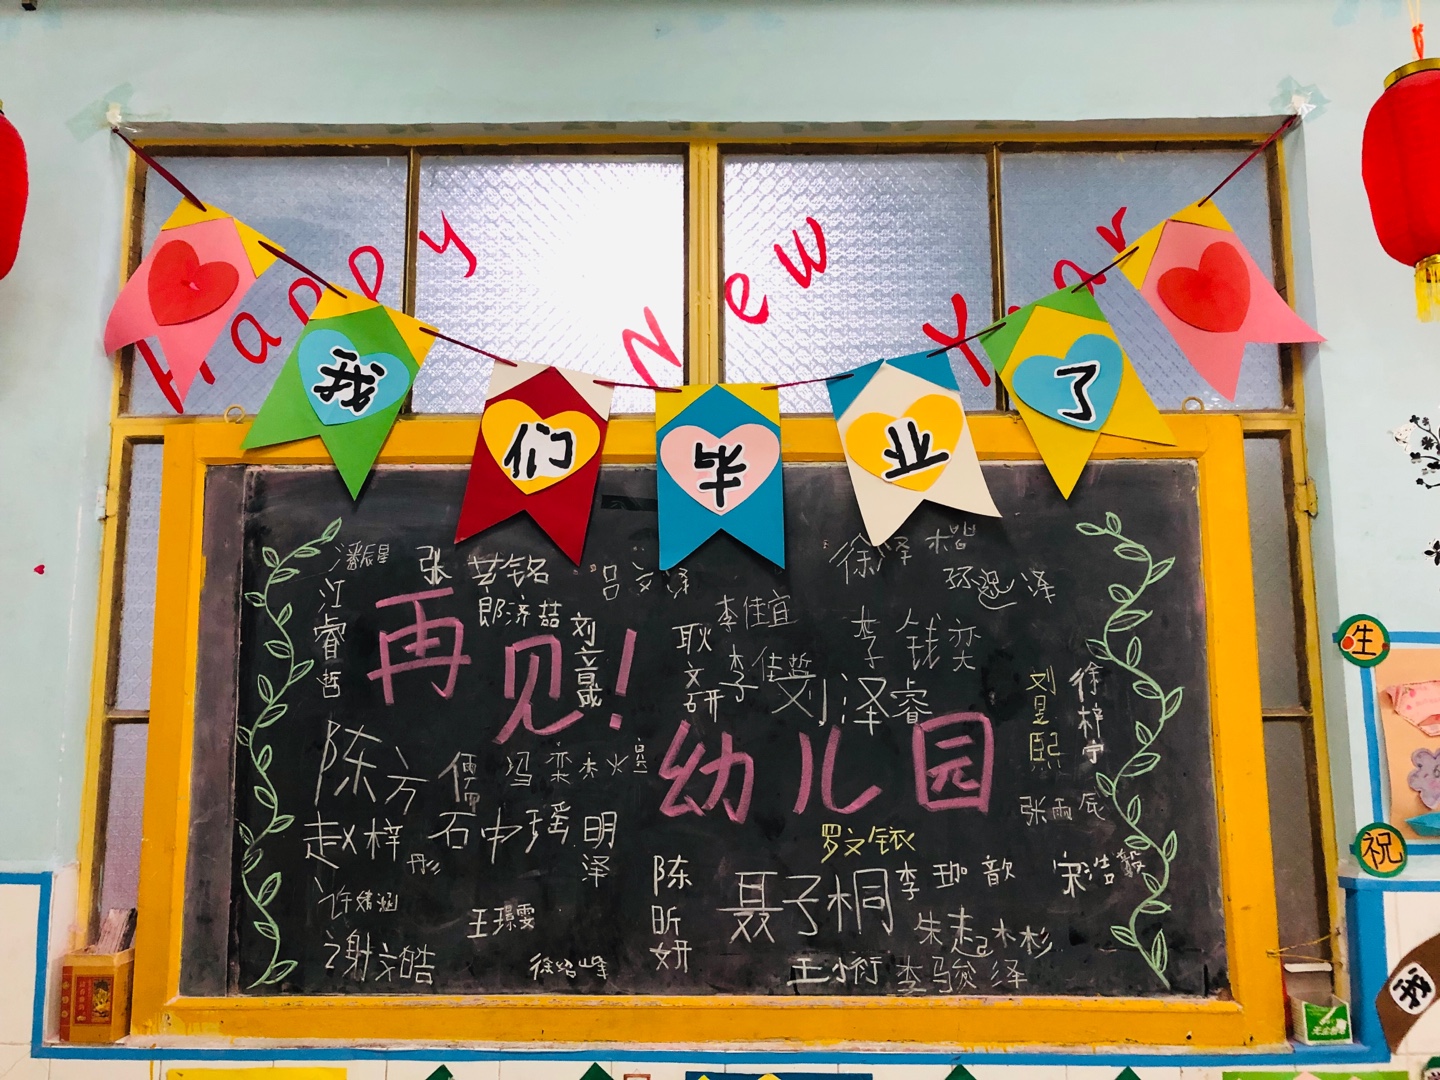 Happy New Year
我们毕业了
再见!
幼儿园
潘辰星
江睿哲
张艺铭
郎济喆
吕文泽
刘音成
耿文研
李佳宜
李佳哲
刘泽睿
李钱奕
徐泽楷
刘昱熙
徐梓宁
张雨辰
陈方儒
赵梓彤
石中瑶
明泽
许婧涵
谢文皓
王璟雯
徐绍峰
陈昕妍
聂子桐
罗文铱
李珈歆
宋浩毅
朱起杉
王小衍
李骏泽
生
祝
我